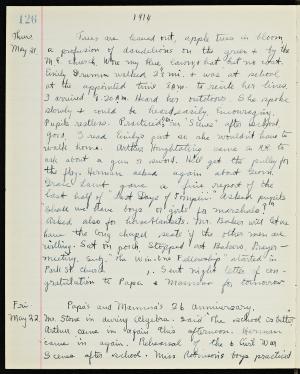 126
1914
Thurs. Trees are leaved out, apple trees in bloom
May 21 a profusion of dandelions on the green & by the
M.E. church. Wore my blue lawn & hat but no coat.
Emily walked 2½ mi. & was at school
at the appointed time 8 A.M. to recite her lines.
I arrived 8.20 A.M. Heard her outdoors. She spoke
slowly & could be heard easily. Encouraging.
Pupils restless. Practiced after school
good, I read Emily's part so she wouldn't have to
walk home. Arthur came in A.M. to
ask about a gun or sword. Will get the pulley for
the flag. Herman asked again about
Grace gave a fine report of the
last half of "Last Days of Pompeii." Asked pupils
"Shall we have boys or girls for marshals?"
Asked also for Mr. will
have the long chapel seats if the other men are
willing. Sat on porch. Stopped at Bakers. Prayer-
meeting. Subj. "The Win-One Fellowship" started in
Park St church. Sent night letter of con-
gratulation to Papa & Mamma for tomorrow
Fri. Papa's and Mamma's 26 anniversary.
May 22. Mr. Stone in during Algebra. Said "The school is better
Arthur came in again this afternoon. Herman
came in again. Rehearsal of the Civil War
Scenes after school. Miss Robinson's boys practiced